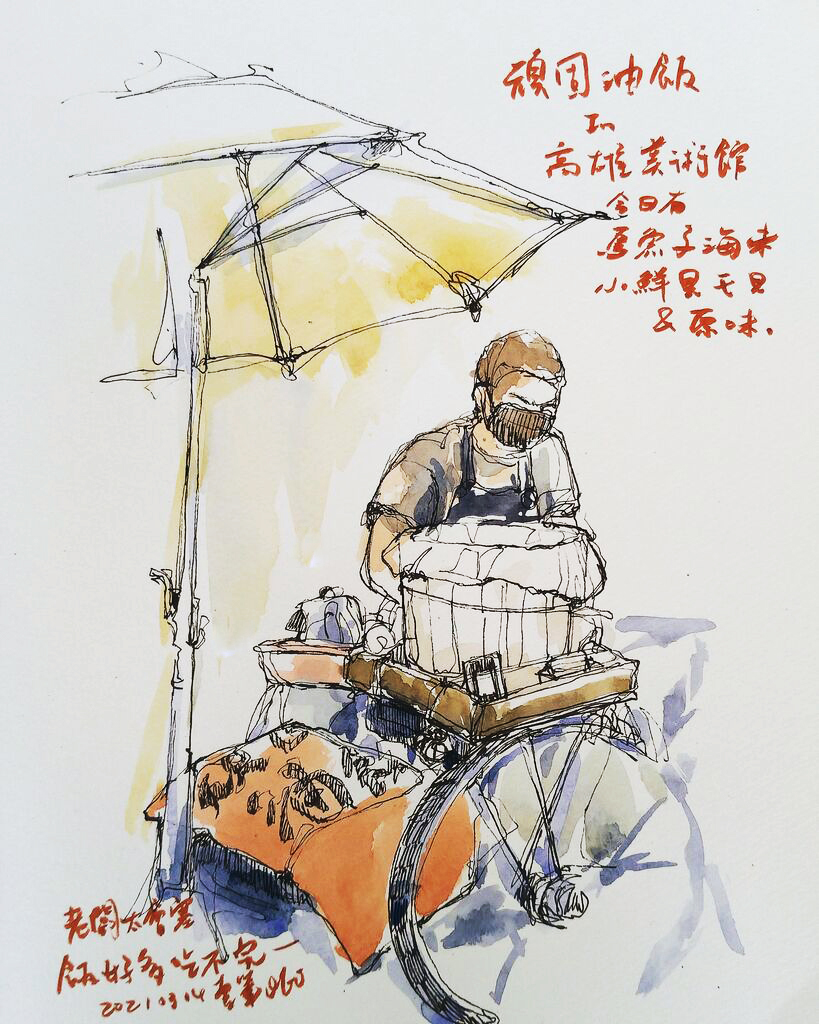 頑固油飯
In
高雄美術館
今日有
烏魚子海味
小鮮貝干貝
&原味.
老闆太會塞
飯好多吃不完
2021.03.14